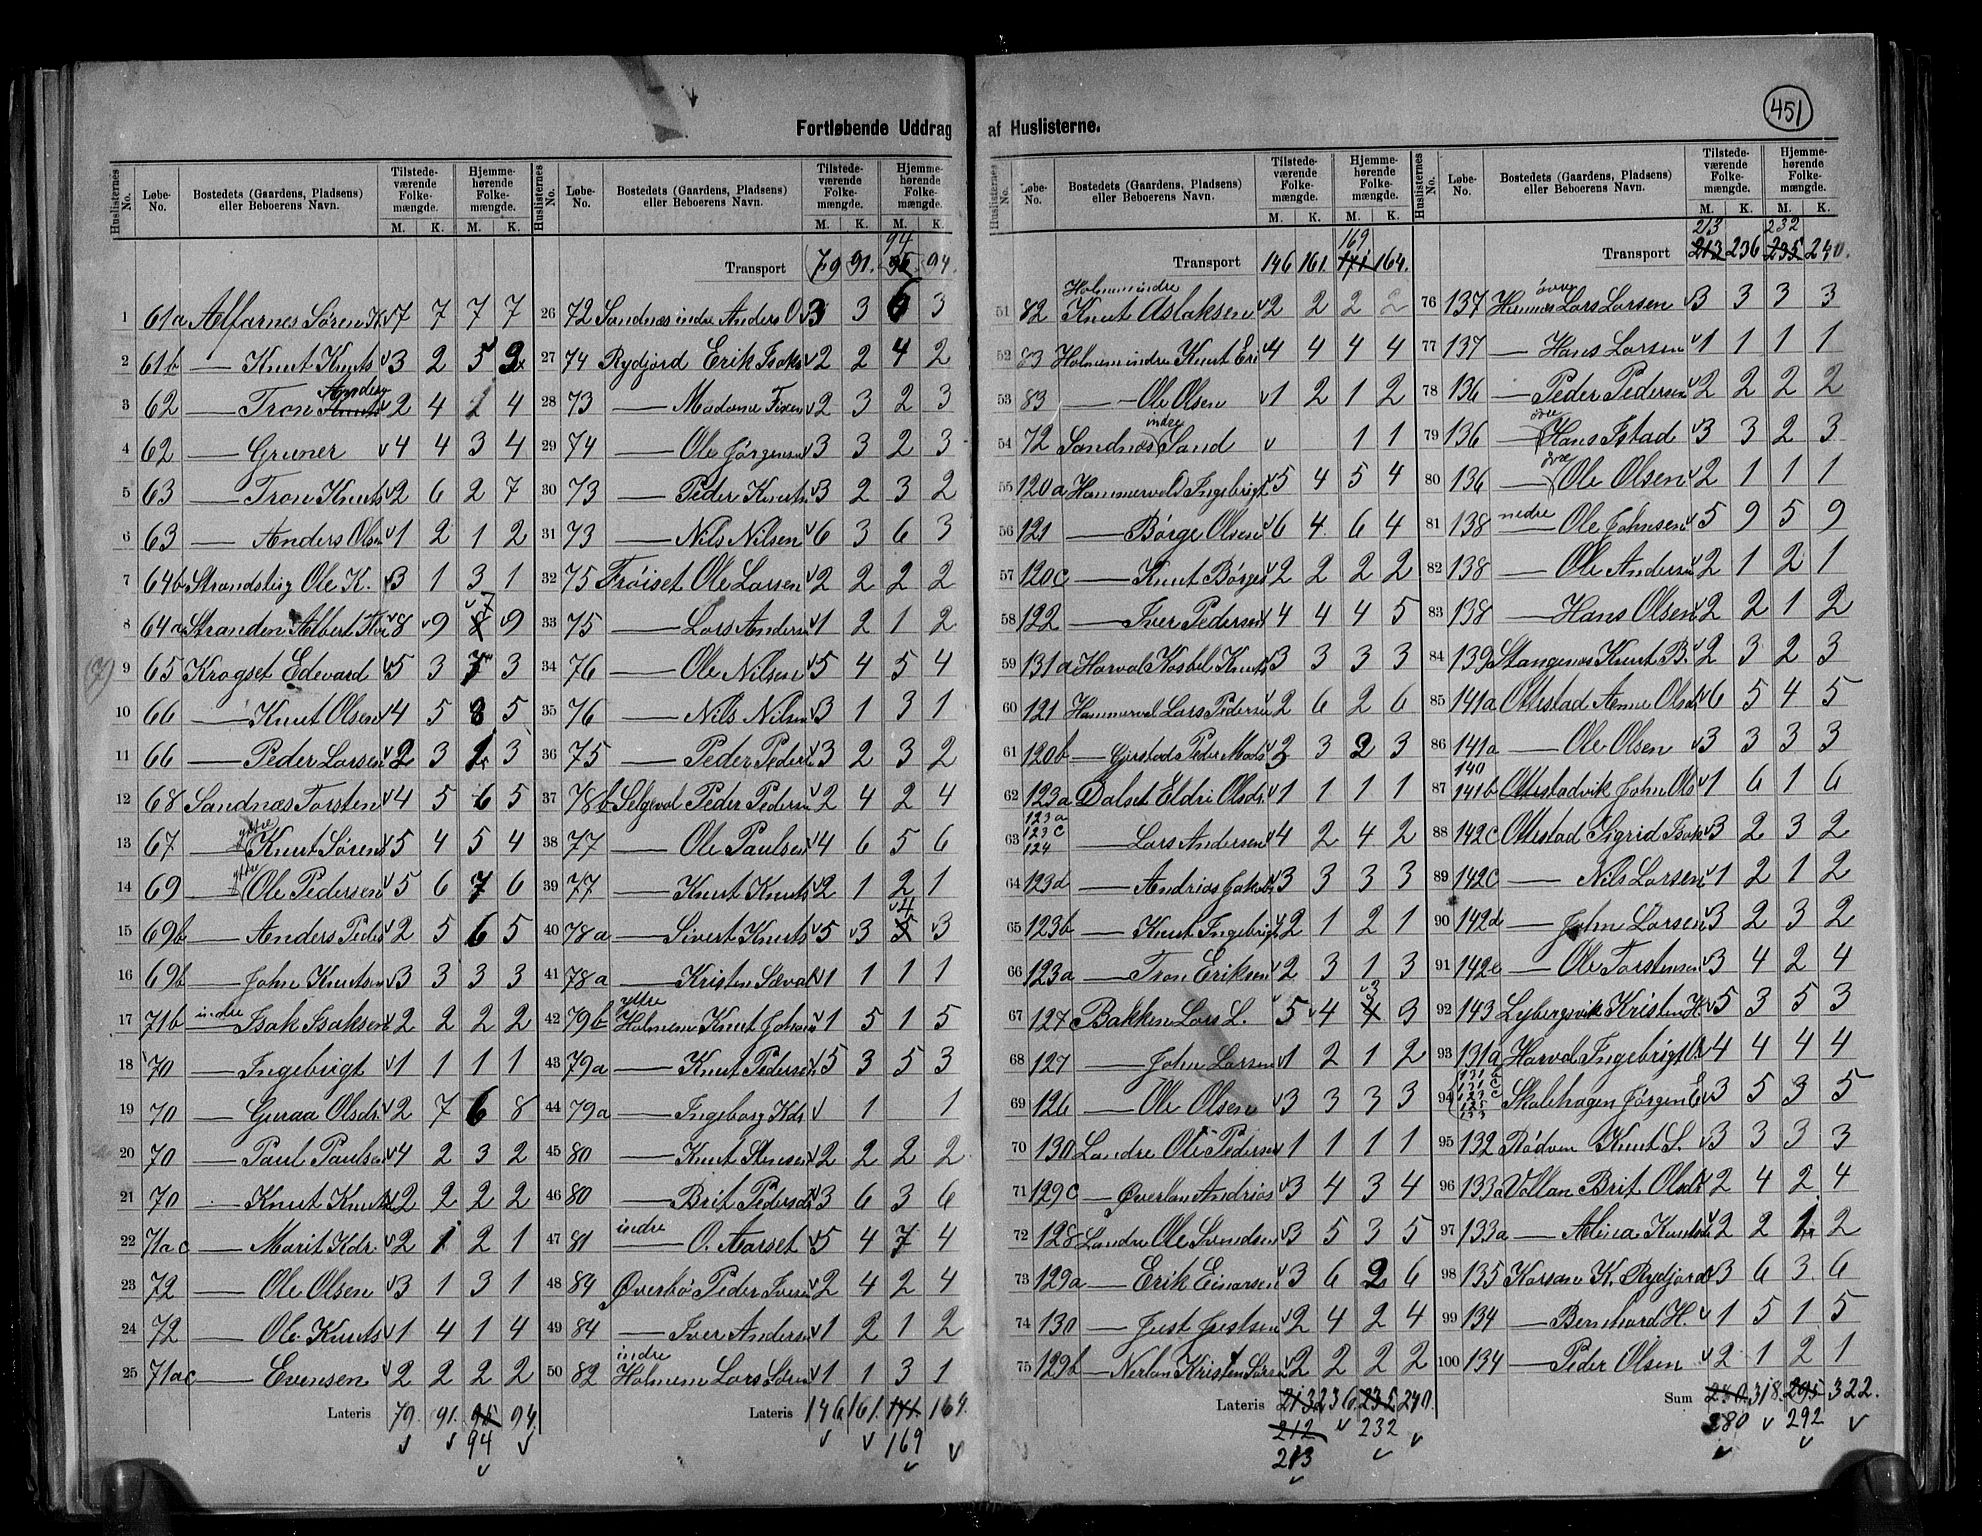 451
Fortløbende Uddrag af Huslisterne.
Huslisternes No. Løbe-No. Bostedets (Gaardens, Pladsens) eller Beboerens Navn. Tilstede-værende Folke-mængde. M. K. Hjemme-hørende Folke-mængde. M. K.
1 61a Alfarnes Sören K. 7 7 7 7
2 61b — Knut Knuts 3 2 5 2
3 62 — Tron Anders 2 4 2 4
4 62 — Gruner 4 4 3 4
5 63 — Tron Knuts 2 6 2 7
6 63 — Anders Olsen 1 2 1 2
7 64b Strandsbrg Ole K. 3 1 3 1
8 64a Stranden Albert 8 9 7 9
9 65 Krogset Edevard 5 3 7 3
10 66 — Knut Olsen 4 5 3 5
11 66 — Peder Larsen 2 3 1 3
12 68 Sandnæs Torsten 4 5 6 5
13 67 — ytre Knut Sörens 5 4 5 4
14 69 — ytre Ole Pedersen 5 6 7 6
15 69b — Anders Peders 2 5 6 5
16 69b — John Knutsen 3 3 3 3
17 71b indre — Isak Isaksen 2 2 2 2
18 70 — Ingebrigt 1 1 1 1
19 70 — Guraa Olsdr 2 7 6 8
20 70 — Paul Paulsen 4 2 3 2
21 70 — Knut Knuts 2 2 2 2
22 71ac — Marit Kdr. 2 1 2 1
23 72 — Ole Olsen 3 1 3 1
24 72 — Ole Knuts 1 4 1 4
25 71ac — Evensen 2 2 2 2
Lateris 79. 91. 95 94.
94
Transport 79 91. 95 94 94.
26 72 Sandnæs indre Anders O 3 3 6 3
27 74 Rydjord Erik Isaks 2 2 4 2
28 73 — Madame Fixen 2 3 2 3
29 74 — Ole Jörgensen 3 3 2 3
30 73 — Peder Knuts 3 2 3 2
31 73 — Nils Nilsen 6 3 6 3
32 75 Fröiset Ole Larsen 2 2 2 2
33 75 — Lars Anders 1 2 1 2
34 76 — Ole Nilsen 5 4 5 4
35 76 — Nils Nilsen 3 1 3 1
36 75 — Peder Peders 3 2 3 2
37 78b Selgevol Peder Peders 2 4 2 4
38 77 — Ole Paulsen 4 6 5 6
39 77 — Knut Knuts 2 1 2 1
40 78a — Sivert Knuts 5 3 5 4 3
41 78a — Kristen 1 1 1 1
42 79b ytre Holmem Knut Johans 1 5 1 5
43 79a — Knut Peders 5 3 5 3
44 79a — Ingeborg Kdr 1 1
45 80 — Knut Stensen 2 2 2 2
46 80 — Brit Pedersdr 3 6 3 6
47 81 indre — O. Aarset 5 4 7 4
48 84 Øverbö Peder Ivers 2 4 2 4
49 84 — Iver Anders 1 2 1 2
50 82 indre Holmem Lars Sören 1 1 3 1
Lateris 146 161. 171. 164.
169
Transport 146 161. 171 169 164.
51 82 Holmem indre Knut Aslaksen 2 2 2 2
52 83 Holmem indre Knut Eri 4 4 4 4
53 83 — Ole Olsen 1 2 1 2
54 72 Sandnæs indre Sand 1 1
55 120a Hammervold Ingebrigt 5 4 5 4
56 121 — Börge Olsen 6 4 6 4
57 120c — Knut Börges 2 2 2 2
58 122 — Iver Pedersen 4 4 4 5
59 131a Harvol Kosbel Knuts 3 3 3 3
60 121 Hammervol Lars Pedersen 2 6 2 6
61 120b — Gjerstad Peder Mads 3 3 2 3
62 123a Dalset Eldri Olsdr. 1 1 1 1
63 123a 123c 124 — Lars Andersen 4 2 4 2
64 123d — Andrias Jakobs 3 3 3 3
65 123b — Knut Ingebrigt 2 1 2 1
66 123a — Tron Eriksen 2 3 1 3
67 127c Bakken Lars L. 5 4 4 3 3
68 127 — John Larsen 1 2 1 2
69 126 — Ole Olsen 3 3 3 3
70 130 Landre Ole Pedersen 1 1 1 1
71 129c — Øverlan Andrias 3 4 3 4
72 128 Landre Ole Svendsen 3 5 3 5
73 129a — Erik Einarsen 3 6 2 6
74 130 — Just Justsen 2 4 2 4
75 129b — Nerlan Kristen Lars 2 2 2 2
Lateris 213 236. 235 240.
212 232
213
Transport 213 213 236 235 232 240.
76 137 Hemnes övre Lars Larsen 3 3 3 3
77 137 — Hans Larsen 1 1 1 1
78 136 — Peder Pedersen 2 2 2 2
79 136 — övre Hans Istad 3 3 2 3
80 136 — övre Ole Olsen 2 1 1 1
81 138 nedre — Ole Johnsen 5 9 5 9
82 138 — Ole Anders 2 1 2 1
83 138 — Hans Olsen 2 2 1 2
84 139 Stangenes Knut B. 2 3 2 3
85 141a Ottestad Anne Olsdr 6 5 4 5
86 141a — Ole Olsen 3 3 3 3
87 140 141b Ottestadvik John Ols 1 6 1 6
88 142c Ottestad Sigrid Isak 3 2 3 2
89 142c — Nils Larsen 1 2 1 2
90 142d — John Larsen 3 2 3 2
91 142e — Ole Torstensen 3 4 2 4
92 143 Lybergsvik Kristen H. 5 3 5 3
93 131a Harvol Ingebrigt 4 4 4 4
94 131b 131c 123c 125 133 Skalehagen Jörgen E. 3 5 3 5
95 132 Rödven Knut L. 3 3 3 3
96 133a Vollan Brit Olsdr 2 4 2 4
97 133a — Alina Knuts 2 2 1 2
98 135 Korsan K. Rydjord 3 6 3. 6
99 134 — Bernhard H. 1 5 1 5
100 134 — Peder Olsen 2 1 2 1
Sum 280. 318. 295 322.
280 292